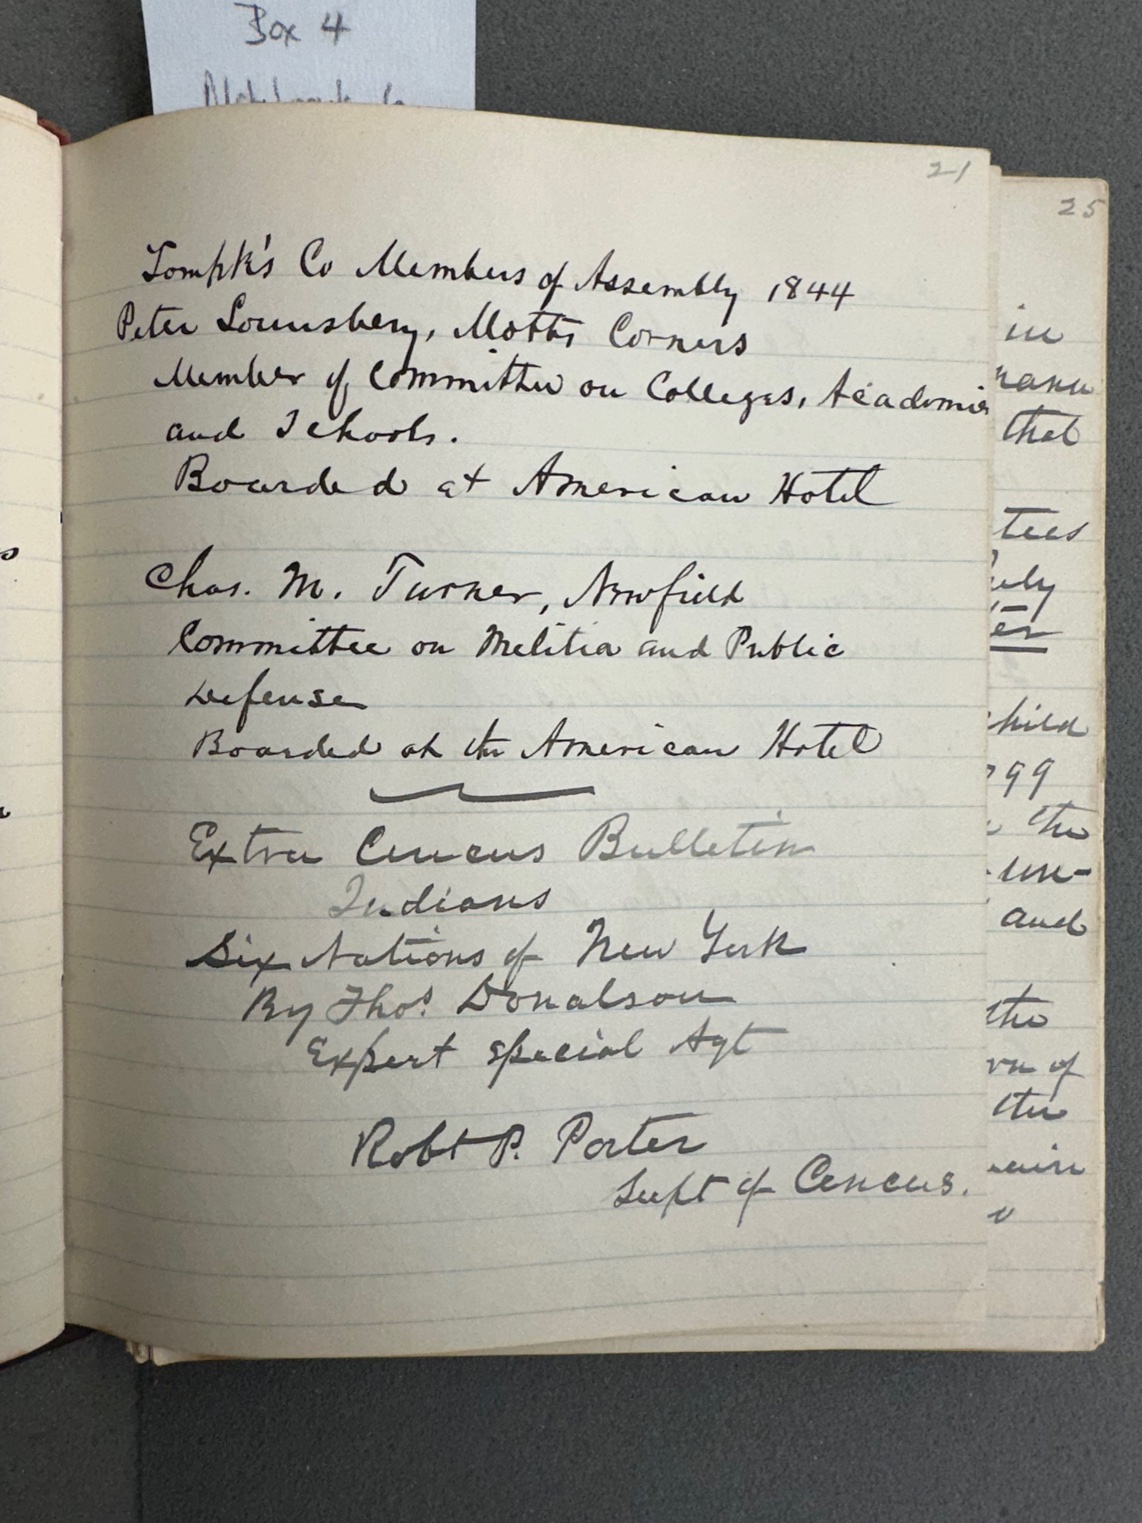 Box 4
Notebook 6
21
Tompk's Co Members of Assembly 1844
Peter Lounsbery, Motts Corners
Member of Committee on Colleges, Academies
and Schools.
Boarded at American Hotel
Chas. M. Turner, Newfield
Committee on Melitia and Public
Defense
Boarded at the American Hotel
Extra Cencus Bulletin
Indians
Six Nations of New York
By Thos. Donalson
Expert Special Agt
Robt P. Porter
Supt of Cencus.
25
in
that
tees
child
799
the
-un-
and
the
of
the